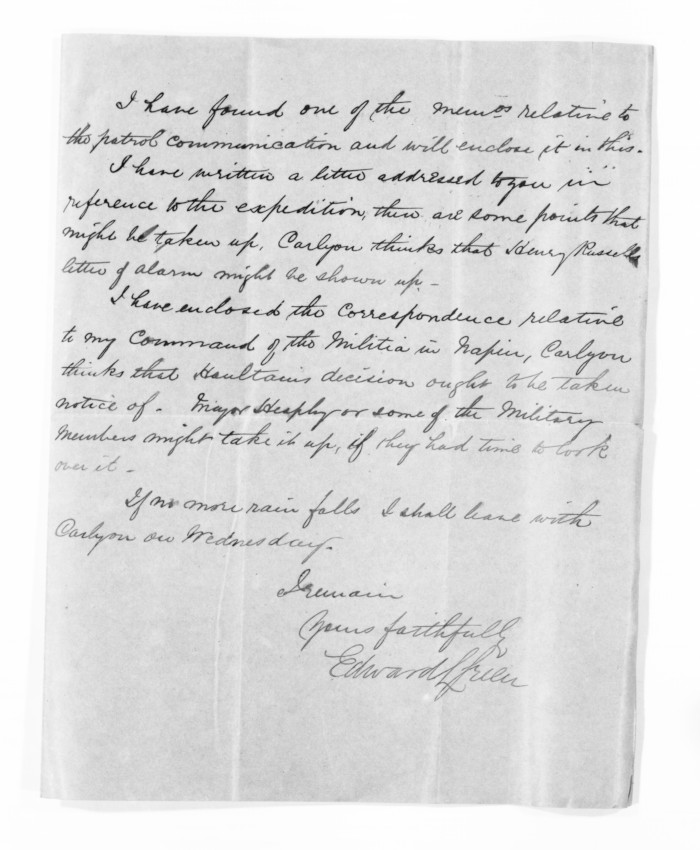 I have found one of the memos relative to
the patrol communication and will enclose it in this.
I have written a letter addressed to you in
reference to the expedition, there are some points that
might be taken up, Carlyon thinks that Henry Russells
letter of alarm might be shown up. -
I have enclosed the Correspondence relative
to my Command of the Militia in Napier, Carlyon
thinks that Haultain's decision ought to be taken
notice of. - Major Heaphy or some of the Military
Members might take it up, if they had time to look
over it -
If no more rain falls I shall leave with
Carlyon on Wednesday.
I remain
Yours faithfully
Edward